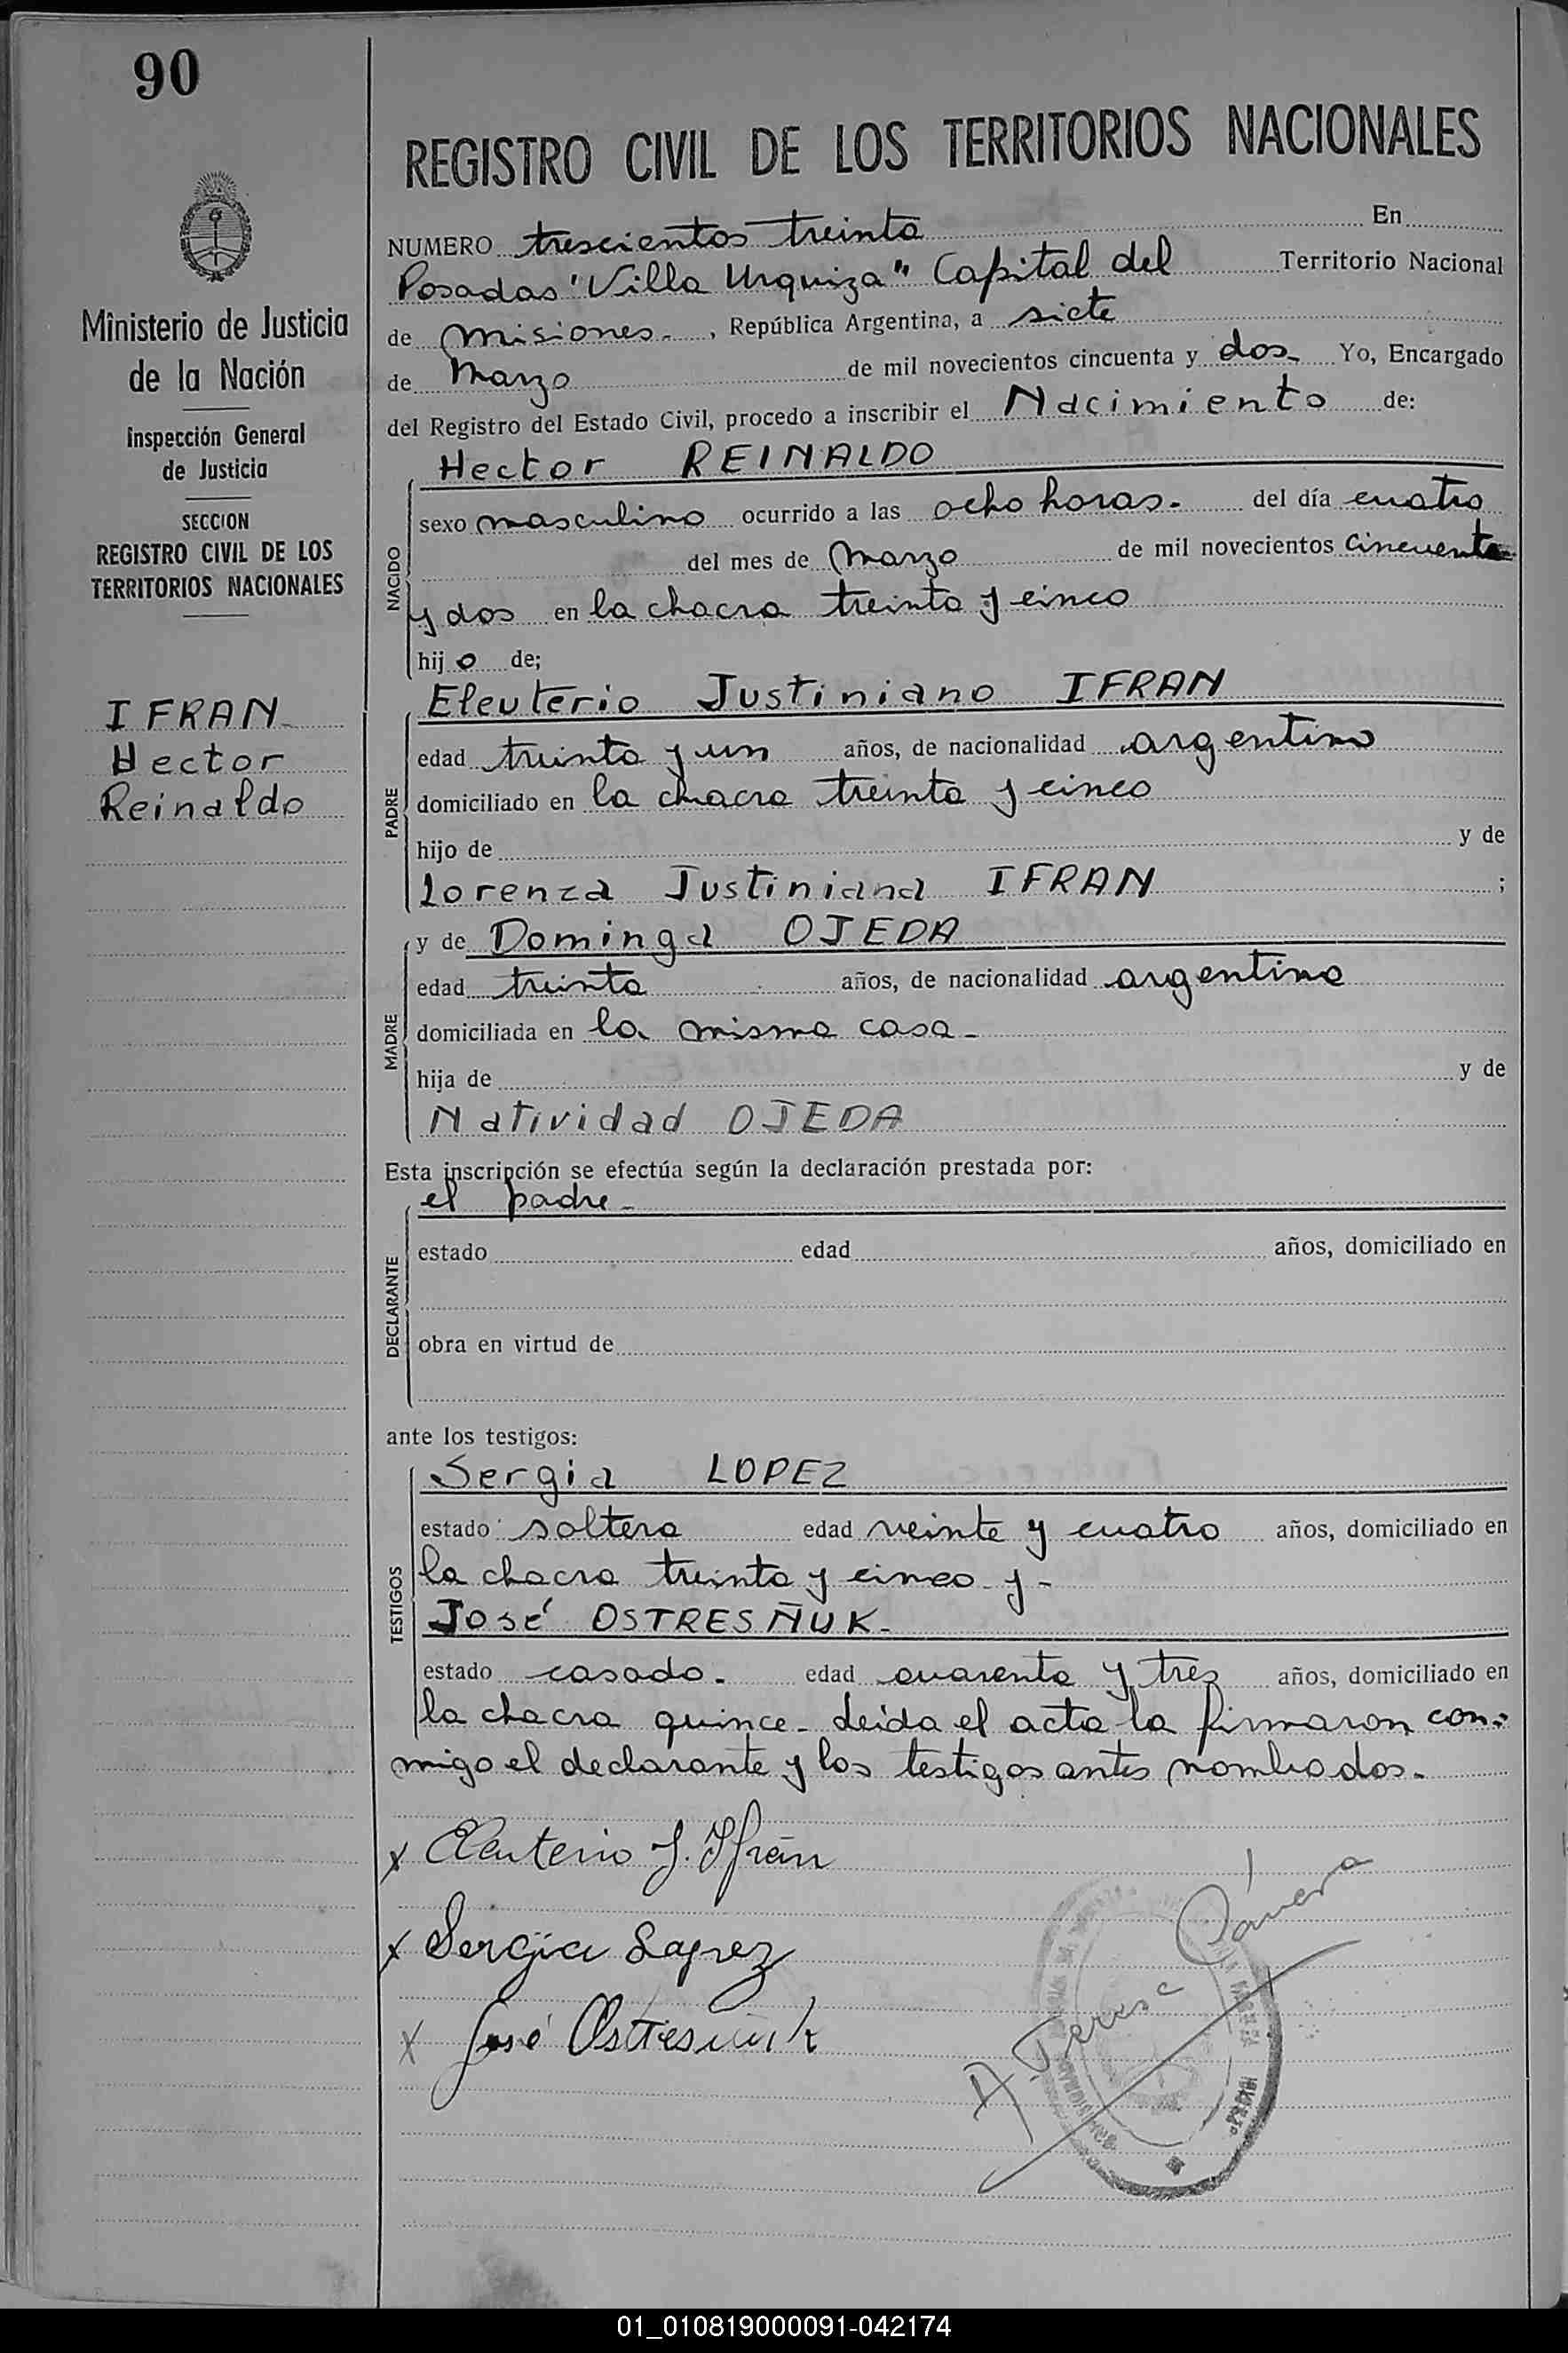 90
REGISTRO CIVIL DE LOS TERRITORIOS NACIONALES
Ministerio de Justicia
de la Nación
Inspección General
de Justicia
SECCION
REGISTRO CIVIL DE LOS
TERRITORIOS NACIONALES
IFRAN
Hector
Reinaldo
NUMERO trescientos treinta En
Posadas "Villa Urquiza" Capital del Territorio Nacional
de Misiones-, República Argentina, a siete
de Marzo de mil novecientos cincuenta y dos- Yo, Encargado
del Registro del Estado Civil, procedo a inscribir el Nacimiento de:
Hector REINALDO
NACIDO
sexo masculino ocurrido a las ocho horas- del día cuatro
del mes de Marzo de mil novecientos cincuenta
y dos en la chacra treinta y cinco
hijo de;
PADRE
Eleuterio Justiniano IFRAN
edad treinta y un años, de nacionalidad argentino
domiciliado en la chacra treinta y cinco
hijo de y de
Lorenza Justiniana IFRAN ;
MADRE
y de Dominga OJEDA
edad treinta años, de nacionalidad argentina
domiciliada en la misma casa-
hija de y de
Natividad OJEDA
Esta inscripción se efectúa según la declaración prestada por:
DECLARANTE
el padre-
estado edad años, domiciliado en
obra en virtud de
ante los testigos:
TESTIGOS
Sergia LOPEZ
estado soltera edad veinte y cuatro años, domiciliado en
la chacra treinta y cinco y-
José OSTRESÑUK-
estado casado- edad cuarenta y tres años, domiciliado en
la chacra quince- Leida el acta la firmaron con-
migo el declarante y los testigos antes nombrados-
x Eleuterio J. Ifrán
x Sergia Lopez
x José Ostresñuk
01_010819000091-042174